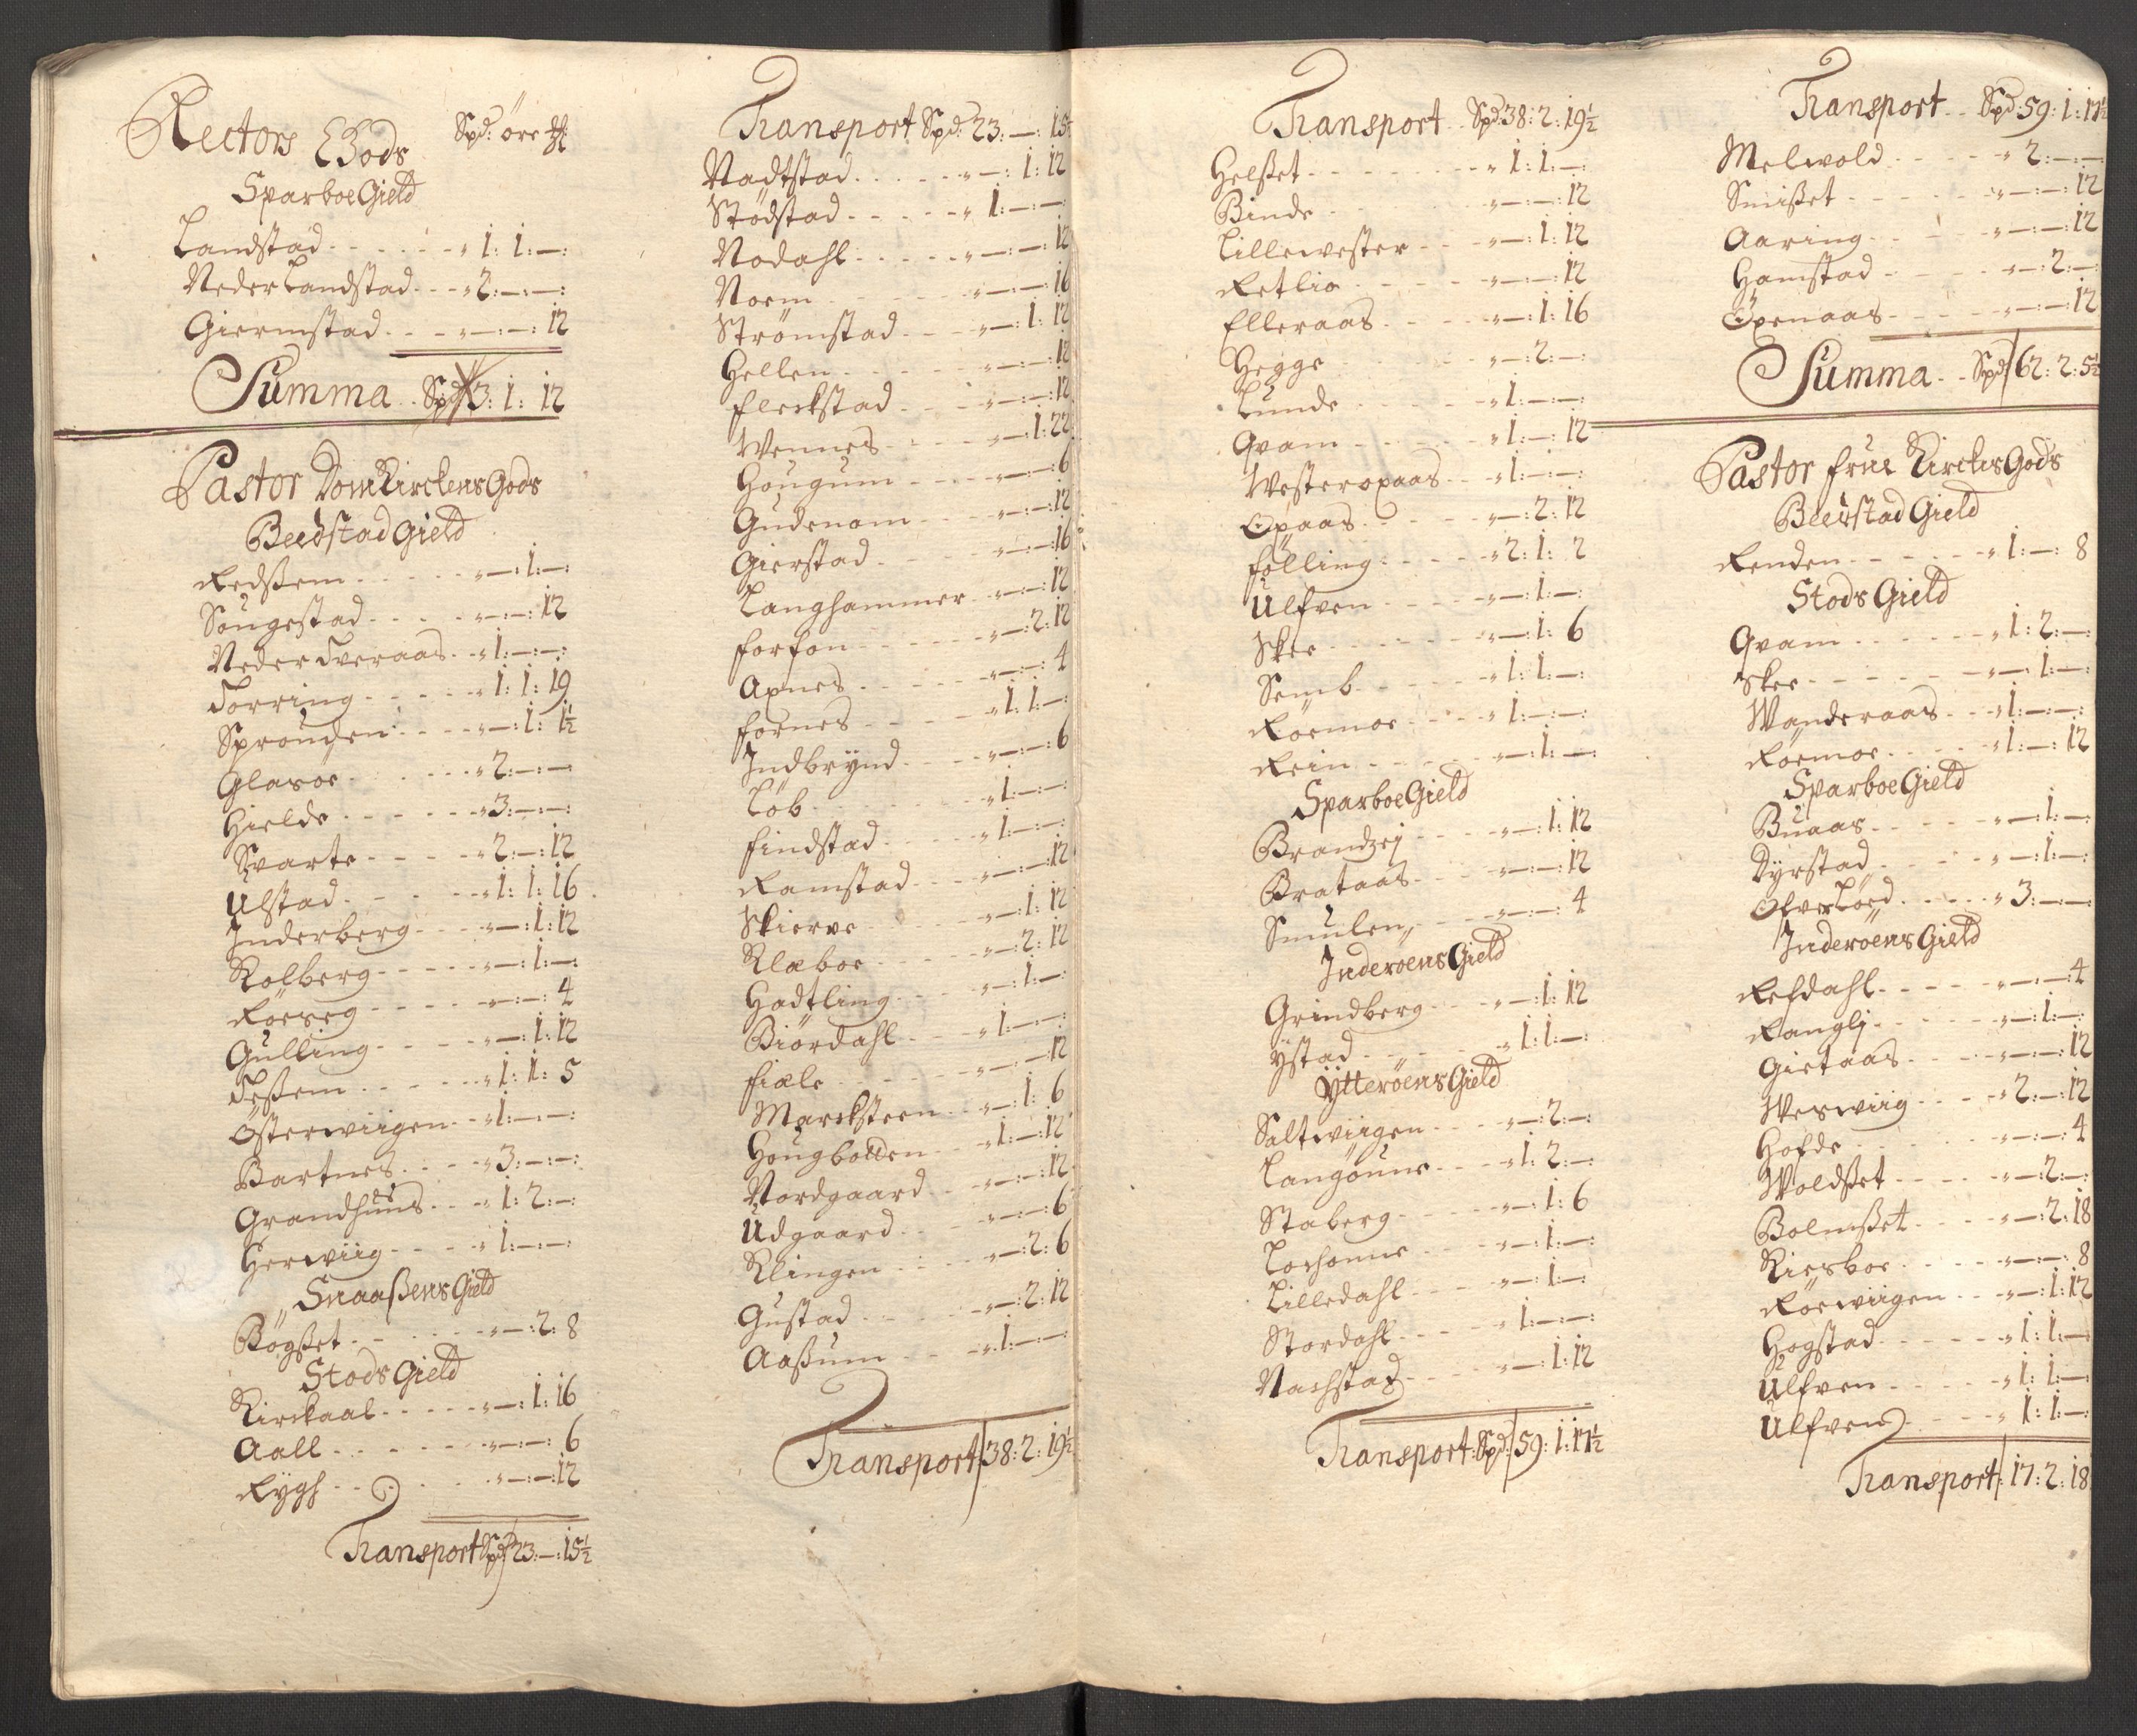 Rectors Gods Spd: öre ℔:
Sparboe Gield
Landstad - - - - - " 1: 1:—:
Neder Landstad - - " 2:—:—:
Giermstad - - - "—:—: 12
Summa - - Spd 3: 1: 12
Pastor Dom Kirckens Gods
Beedstad Gield
Redssem - - - - - "—: 1:—:
Sougestad - - - - "—:—: 12
Neder Tveraas - - " 1:—:—:
Torring - - - - - " 1: 1: 19
Sprouden - - - - "—: 1: 1½
Glasoe - - - - - " 2:—:—
Hielde - - - - - " 3:—:—:
Svarte - - - - - " 2:—: 12
Ulstad - - - - - " 1: 1: 16
Inderberg - - - - "—: 1: 12
Kolberg - - - - - "—: 1:—:
Röeseg - - - - - "—:—: 4
Gulling - - - - - "—: 1: 12
Tessem - - - - - " 1: 1: 5
Österwiigen - - " 1:—:—:
Bartnes - - - - " 3:—:—:
Grandhuus - - - " 1: 2:—:
Herwiig - - - - " 1:—:—:
Snaaßens Gield
Bögßet - - - - - "—: 2: 8
Stods Gield
Kirckaal - - - - - "—: 1: 16
Aall - - - - - - "—:—: 6
Rygh - - - - - "—:—: 12
Transport Spd 23:—: 15½
Transport Spd: 23:—: 15½
Nadtstad - - - - - "—: 1: 12
Stödstad - - - - - " 1:—:—
Nodahl - - - - - "—:—: 12
Noem - - - - - "—:—: 16
Strömstad - - - - "—: 1: 12
Hellen - - - - - "—:—: 12
Fleckstad - - - - "—:—: 12
Wennes - - - - - "—: 1: 22
Hougum - - - - - "—:—: 6
Gudenom - - - - "—:—: 12
Gierstad - - - - "—:—: 16
Langhammer - - "—:—: 12
Forfon - - - - - "—: 2: 12
Apnes - - - - - "—:—: 4
Fornes - - - - - " 1: 1:—:
Indbrynd - - - - "—:—: 6
Löb - - - - - - " 1:—:—:
Findstad - - - - " 1:—:—:
Ramstad - - - - "—:—: 12
Skierve - - - - "—: 1: 12
Klæboe - - - - - "—: 2: 12
Hadtling - - - - "—: 1:—
Biördahl - - - " 1:—:—:
Fiæle - - - - - "—:—: 12
Marcksteen - - "—: 1: 6
Hougbolden - - " 1:—: 12
Nordgaard - - - "—:—: 12
Udgaard - - - - "—:—: 6
Klingen - - - - "—: 2: 6
Gustad - - - - - "—: 2: 12
Aaßum - - - - " 1:—:—:
Transport 38: 2: 19½
Transport - - Spd 38: 2: 19½
Helßet - - - - - - " 1: 1:—:
Binde - - - - - "—:—: 12
Lillewester - - - "—: 1: 12
Retlio - - - - - "—:—: 12
Elleraas - - - - "—: 1: 16
Hegge - - - - - "—: 2:—:
Lunde - - - - - " 1:—:—:
Qvam - - - - - " 1:—: 12
Westeropaas - - " 1:—:—:
Opaas - - - - - "—: 2: 12
Fölling - - - - - " 2: 1: 2
Ulfven - - - - - "—: 1:—:
Skee - - - - - - "—: 1: 6
Semb - - - - - " 1: 1:—:
Röemoe - - - - " 1:—:—:
Rein - - - - - "—: 1:—:
Sparboe Gield
Brandzej - - - - "—: 1: 12
Brataas - - - - "—:—: 12
Smulen - - - - "—:—: 4
Inderöens Gield
Grindberg - - - "—: 1: 12
Ystad - - - - - " 1: 1:—:
Ytteröens Gield
Saltwiigen - - - "—: 2:—:
Langöune - - - " 1: 2:—:
Staberg - - - - "—: 1: 6
Lorhonne - - - - "—: 1:—:
Lilledahl - - - "—: 1:—:
Stordahl - - - - " 1:—:—:
Nachstad - - - - "—: 1: 12
Transport: Spd: 59: 1: 17½
Transport - - Spd: 59: 1: 17½
Melwold - - - - " 2:—:—:
Smißet - - - - - "—:—: 12
Aaring - - - - - "—:—: 12
Hamstad - - - - "—: 2:—:
Öxenaas - - - - "—:—: 12
Summa - - Spd 62: 2: 5½
Pastor Frue Kirckes Gods
Beedstad Gield
Renden - - - - - " 1:—: 8
Stods Gield
Qvam - - - - - " 1: 2:—:
Skee - - - - - - "—: 1:—:
Wanderaas - - - " 1:—:—:
Röemoe - - - - " 1:—: 12
Sparboe Gield
Buaas - - - - - "—: 1:—:
Dyrstad - - - - "—: 1:—:
Ofver Loed - - - - " 3:—:—:
Inderoens Gield
Refdahl - - - - - "—:—: 4
Ranglj - - - - - "—: 1:—:
Gietaas - - - - "—:—: 12
Weswiig - - - - " 2:—: 12
Hofde - - - - - "—:—: 4
Woldßet - - - - "—: 2:—:
Bolmßet - - - - "—: 2: 18
Kiesboe - - - - "—:—: 8
Röewiigen - - - "—: 1: 12
Hogstad - - - - - " 1: 1:—:
Ulfven - - - - - " 1: 1:—:
Ulfven - - - - " 1: 1:—:
Transport: 17: 2: 18